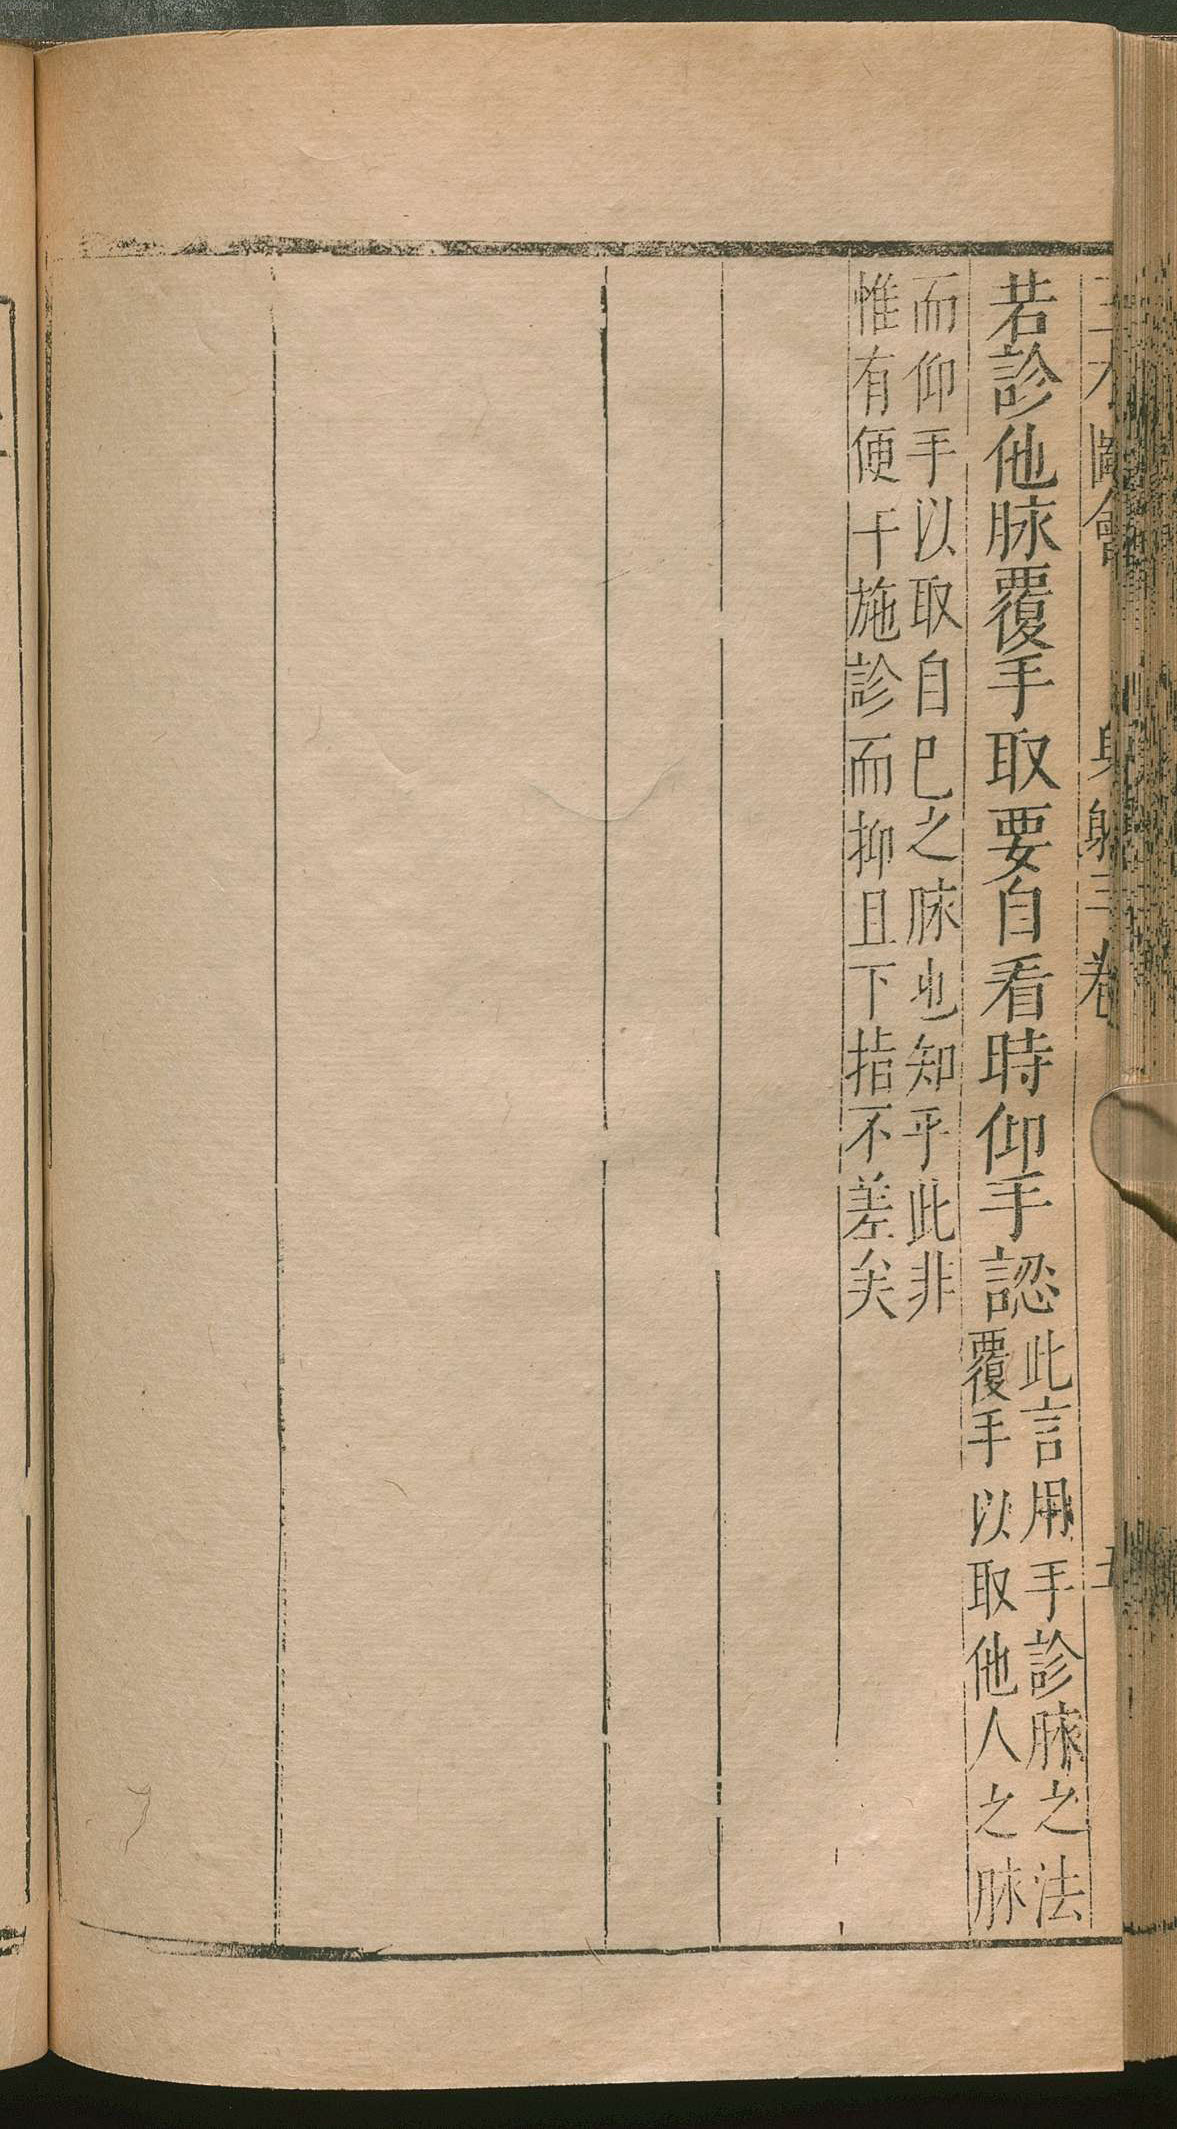 三才圖會 身體三卷 五
若診他脉覆手取要自看時仰手認此言用手診脉之法
覆手以取他人之脉
而仰手以取自巳之脉也知乎此非
惟有便于施診而抑且下指不差矣